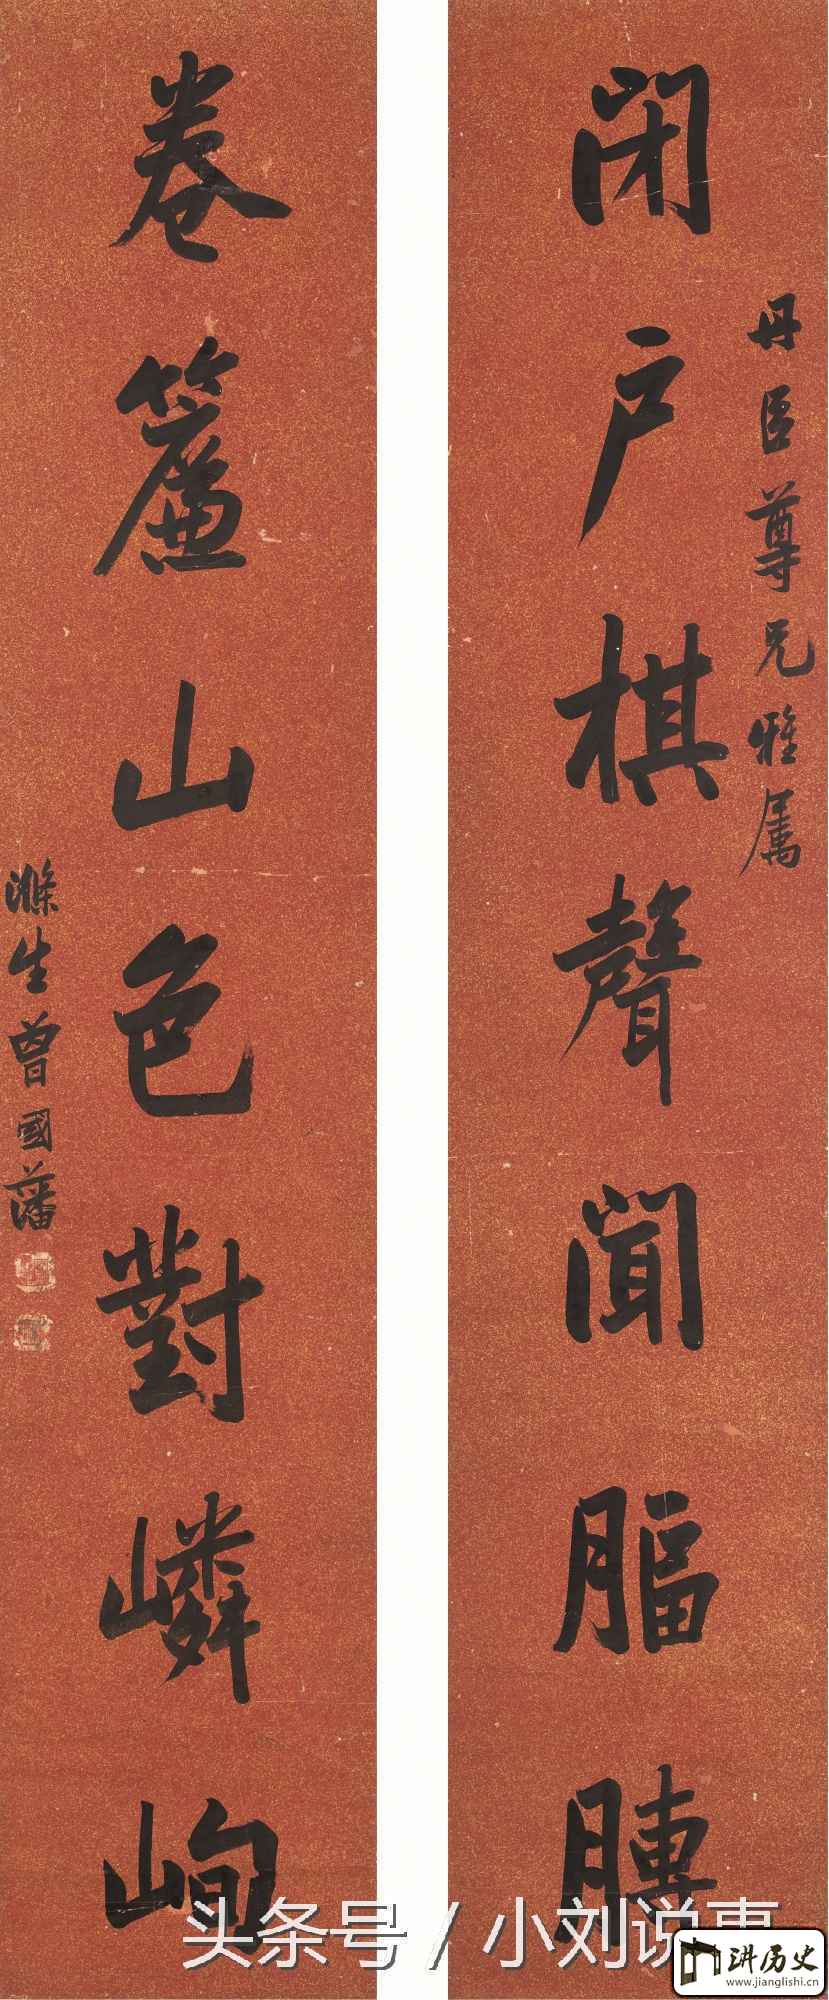 丹臣尊兄雅属
闭户棋聲闻腷膊
卷簾山色對嶙峋
滌生曾國藩
头条号 / 小刘说事
讲历史
www.jianglishi.cn